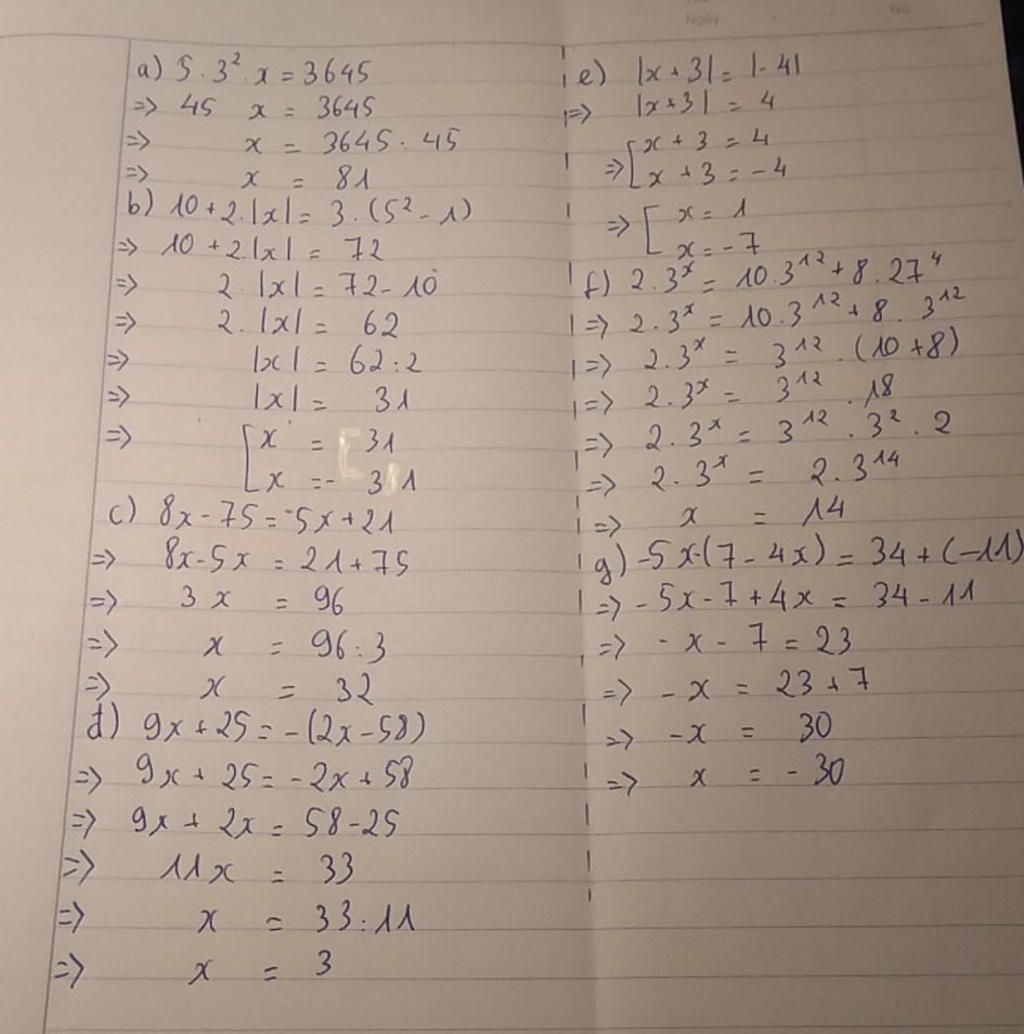 Ngày
No.
a) 5.3².x = 3645
=> 45 x = 3645
=> x = 3645 : 45
=> x = 81
b) 10 + 2.|x| = 3.(5² - 1)
=> 10 + 2.|x| = 72
=> 2.|x| = 72 - 10
=> 2.|x| = 62
=> |x| = 62 : 2
=> |x| = 31
=> [x = 31
[x = - 31
c) 8x - 75 = 5x + 21
=> 8x - 5x = 21 + 75
=> 3x = 96
=> x = 96 : 3
=> x = 32
d) 9x + 25 = -(2x - 58)
=> 9x + 25 = -2x + 58
=> 9x + 2x = 58 - 25
=> 11x = 33
=> x = 33 : 11
=> x = 3
e) |x + 3| = |-4|
=> |x + 3| = 4
=> [x + 3 = 4
[x + 3 = -4
=> [x = 1
[x = -7
f) 2.3ˣ = 10.3¹² + 8.27⁴
=> 2.3ˣ = 10.3¹² + 8.3¹²
=> 2.3ˣ = 3¹².(10 + 8)
=> 2.3ˣ = 3¹².18
=> 2.3ˣ = 3¹².3².2
=> 2.3ˣ = 2.3¹⁴
=> x = 14
g) -5x-(7 - 4x) = 34 + (-11)
=> -5x - 7 + 4x = 34 - 11
=> -x - 7 = 23
=> -x = 23 + 7
=> -x = 30
=> x = -30